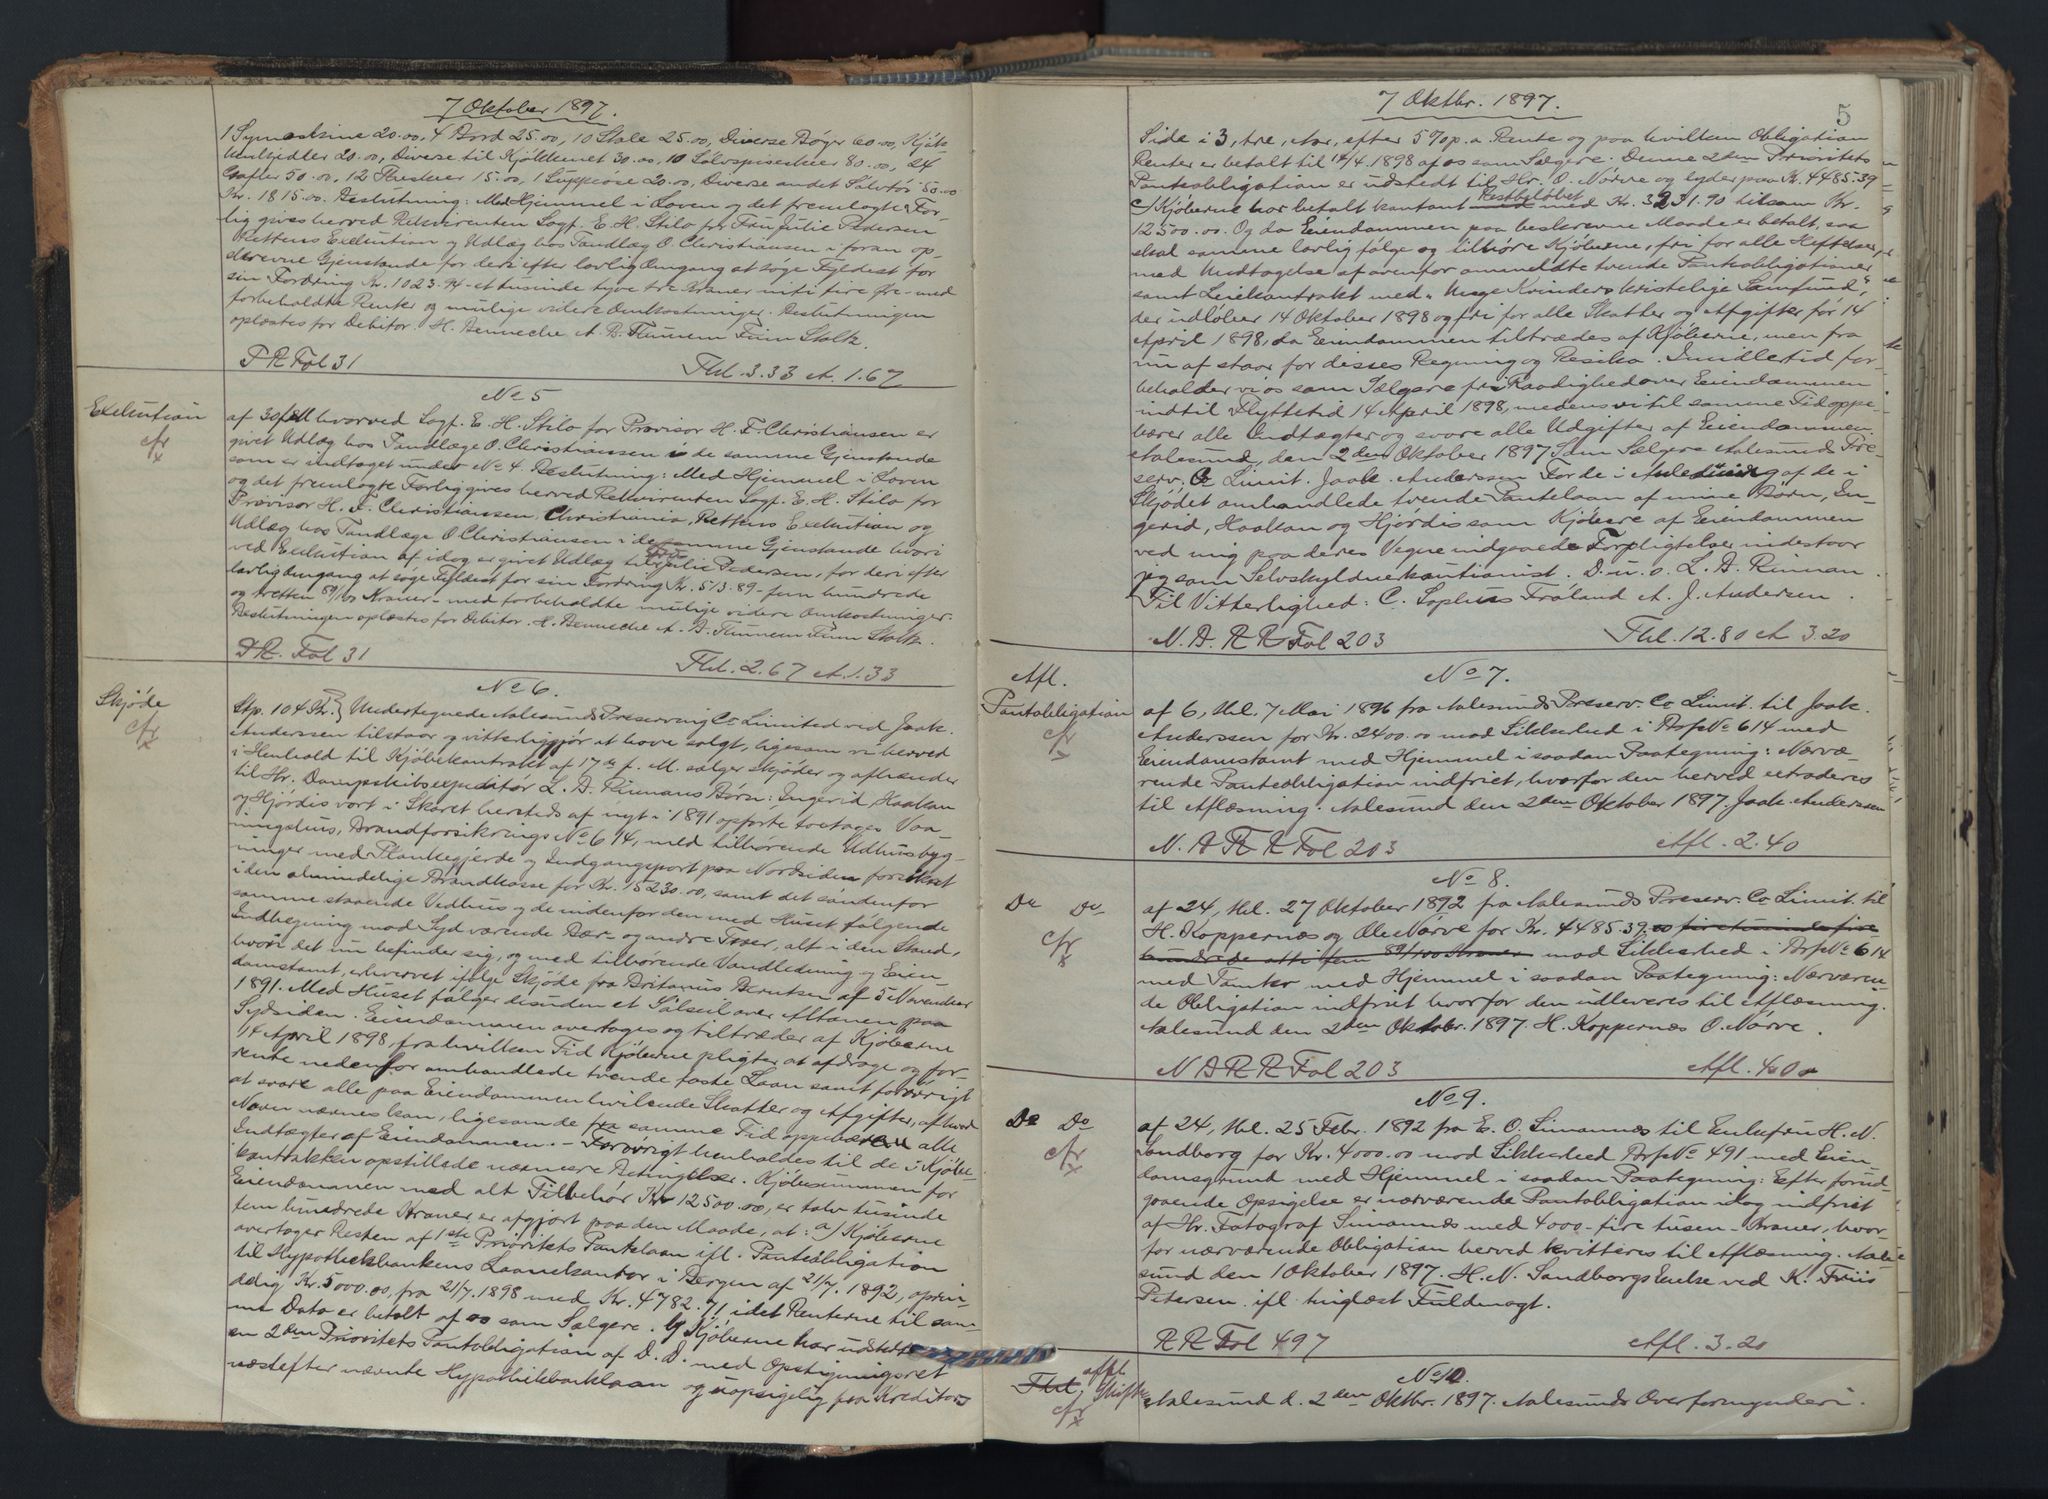 7 Oktober 1897.
1 Symaskine 20.00, 4 Bord 25.00, 10 Stole 25.00, Diverse Bøger 60.00, Kjøk-
20.00, Diverse til Kjøkkenet 30.00, 10 Sølvspiseskeer 80.00, 24
Gafler 50.00, 12 Theskeer 15.00, 1 Suppeøse 20.00, Diverse andet Sølvtøi 50.00
Kr. 1815.00. Beslutning: Med Hjemmel i Loven og det fremlagte For-
lig gives herved Rekvirenten Sagf. E. H. Stilo for Fru Julie Pedersen
Rettens Exekution og Udlæg hos Tandlæg O. Christiansen i foran op-
skrevne Gjenstande for deri efter lovlig Omgang at søge Fyldest for
sin Fordring Kr. 1023.94 - et tusinde tyve tre Kroner niti fire Øre - med
forbeholdte Renter og mulige videre Omkostninger. Beslutningen
oplæstes for Debitor. H. Benneche A. B. Flennem Finn Stolk.
P R Fol 31 Thl. 3.33 A. 1.67
No 5
Exekution
cfr
x
af 30/ hvorved Sagf. E. H. Stilo for Provisor H. F. Christiansen er
givet Udlæg hos Tandlæge O. Christiansen i de samme Gjenstande
som er indtaget under No 4. Beslutning: Med Hjemmel i Loven
og det fremlagte Forlig gives herved Rekvirenten Sagf. E. H. Stilo for
Provisor H. F. Christiansen, Christiania, Rettens Exekution og
Udlæg hos Tandlæge O Christiansen i de samme Gjenstande hvori
ved Exekution af idag er givet Udlæg til Fru Julie Pedersen, for deri efter
lovlig Omgang at søge Fyldest for sin Fordring Kr. 513.89 - fem hundrede
og tretten 89/100 Kroner - med forbeholdte mulige videre Omkostninger.
Beslutningen oplæstes for Debitor. H. Benneche A. B. Flennem Finn Stolk.
P R. Fol 31 Thl. 2.67 A. 1.33
No 6.
Skjøde
cfr
x
Stp. 104 Kr. } Undertegnede Aalesunds Preserving Co Limited ved Jaak.
Anderssen tilstaar og vitterliggjør at have solgt, ligesom vi herved
i Henhold til Kjøbekontrakt af 17de f. M. sælger skjøder og afhænder
til Hr. Dampskibsexpeditør L. A. Rinnans Børn: Ingerid, Haakon
og Hjørdis vort i Skaret hersteds af nyt i 1891 opførte toetages Vaa-
ningshus, Brandforsikrings No 614, med tilhørende Udhusbyg-
ninger med Plankegjerde og Indgangsport paa Nordsiden forsikret
i den almindelige Brandkasse for Kr. 15230.00, samt det søndenfor
samme staaende Vedhus og de indenfor den med Huset følgende
Indhegning mod Syd værende Bær- og andre Træer, alt i den Stand,
hvori det nu befinder sig, og med tilhørende Vandledning og Eien-
domstomt, erhvervet ifølge Skjøde fra Britanus Berntsen af 5 November
1891. Med Huset følger desuden et Solseil over Altanen paa
Sydsiden. Eiendommen overtages og tiltræder af Kjøberne
14 April 1898, fra hvilken Tid Kjøberne pligter at afdrage og for-
rente nedenfor omhandlede tvende faste Laan samt forøvrigt
at svare alle paa Eiendommen hvilende Skatter og Afgifter, af hvad
Navn nævnes kan, ligesom de fra samme Tid oppebærer alle
Indtægter af Eiendommen. - Forøvrigt henholdes til de i Kjøbe-
kontrakten opstillede nærmere Betingelser. Kjøbesummen for
Eiendommen med alt Tilbehør Kr 12500.00, er tolv tusinde
fem hundrede Kroner er afgjort paa den Maade, at: a) Kjøberne
overtager Resten af 1ste Prioritets Pantelaan ifl. Pantobligation
til Hypothekbankens Laanekontor i Bergen af 21/7. 1892, oprin-
delig Kr. 5000.00, fra 21/7. 1898 med Kr. 4782.71, idet Renterne til sam-
me Dato er betalt af os som Sælgere. b) Kjøberne har udstedt
en 2den Prioritets Pantobligation af D. D. med Opstigningsret
næstefter nævnte Hypothekbanklaan og uopsigelig paa Kreditors
7 Oktbr. 1897.
5
Side i 3, tre, Aar, efter 5% p. a Rente og paa hvilken Obligation
Renter er betalt til 14/4. 1898 af os som Sælgere. Denne 2den Prioritets
Pantobligation er udstedt til Hr. O. Nørve og lyder paa Kr. 4485.39
c) Kjøberne har betalt kontant Restbeløbet med Kr. 3231.90 tilsam Kr.
12500.00. Og da Eiendommen paa beskrevne Maade er betalt, saa
skal samme lovlig følge og tilhøre Kjøberne, fri for alle Heftelser,
med Undtagelse af ovenfor anmeldte tvende Pantobligationer
samt Leiekontrakt med "Unge Kvinders kristelige Samfund",
der udløber 14 Oktober 1898 og fri for alle Skatter og Afgifter før 14
April 1898, da Eiendommen tiltrædes af Kjøberne, men fra
nu af staar for disses Regning og Risiko. Imidlertid for-
beholder vi os som Sælgere fri Raadighed over Eiendommen
indtil Flyttetid 14 April 1898, medens vi til samme Tid oppe-
bærer alle Indtægter og svare alle Udgifter af Eiendommen.
Aalesund, den 2den Oktober 1897 Som Sælgere Aalesunds Pre-
serv. Co Limit. Jaak. Anderssen For de i Anledning af de i
Skjødet omhandlede tvende Pantelaan af mine Børn, In-
gerid, Haakon og Hjørdis som Kjøbere af Eiendommen
ved mig paa deres Vegne indgaaede Forpligtelser indestaar
jeg som Selvskyldnerkautionist. D. u. s. L. A. Rinnan.
Til Vitterlighed: C. Sophus Froland A. J. Andersen.
N. B. R R Fol 203 Thl. 12.80 A 3.20
No 7.
Afl.
Pantobligation
cfr
x
af 6, thl. 7 Mai 1896 fra Aalesunds Preserv. Co Limit. til Jaak.
Anderssen for Kr. 2400.00 mod Sikkerhed i Brf No 614 med
Eiendomstomt med Hjemmel i saadan Paategning: Nærvæ-
rende Pantobligation indfriet, hvorfor den herved extraderes
til Aflæsning. Aalesund den 2den Oktober 1897. Jaak. Anderssen
N. B R R Fol 203 Afl. 2.40
No 8.
Do Do
cfr
x
af 24, thl. 27 Oktober 1892 fra Aalesunds Preserv. Co Limit. til
H. Koppernæs og Ole Nørve for Kr. 4485.39 er firetusinde fire
hundrede otti fem 89/100 Kroner mod Sikkerhed i Brf No 614
med Tomter med Hjemmel i saadan Paategning: Nærværen-
de Obligation indfriet hvorfor den udleveres til Aflæsning.
Aalesund den 2den Oktobr. 1897. H. Koppernæs O. Nørve.
N B R R Fol 203 Afl. 4.00
No 9.
Do Do
cfr
x
af 24, thl. 25 Febr. 1892 fra E. O. Simonnes til Enkefru H. N.
Sandborg for Kr. 4000.00 mod Sikkerhed Brf No 491 med Eien
domsgrund med Hjemmel i saadan Paategning: Efter forud-
gaaende Opsigelse er nærværende Pantobligation idag indfriet
af Hr. Fotograf Simonnes med 4000 - fire tusen - Kroner, hvor-
for nærværende Obligation herved kvitteres til Aflæsning. Aale-
sund den 1 Oktober 1897. H. N. Sandborgs Enke ved K. Friis
Petersen. ifl. tinglæst Fuldmagt.
R R Fol 497 Afl. 3.20
No 10.
cfr
x
Aalesund d. 2den Oktbr. 1897. Aalesunds Overformynderi.